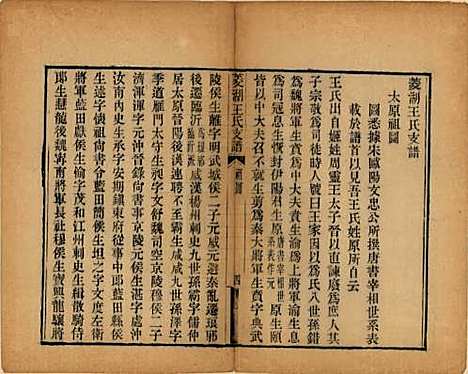 菱湖王氏支譜
太原祖圖
圖悉據宋歐陽文忠公所撰唐書宰相世系表
載於譜首以見吾王氏姓原所自云
王氏出自姬姓周靈王太子晉以直諫廢爲庶人其
子宗敬爲司徒時人號曰王家因以爲氏八世孫錯
爲魏將軍生賁爲中大夫賁生渝爲上將軍渝生息
爲司寇息生恢封伊陽君生原
原生頤
皆以中大夫召不就生剪爲秦大將軍生賁字典武
菱湖王氏支譜
祖圖
四
陵侯生離字明武城侯二子元威元避秦亂遷琅邪
後遷臨沂
威漢楊州刺史九世孫霸字儒仲
居太原晉陽後漢連聘不至霸生咸咸九世孫澤字
季道雁門太守生昶字文舒魏司空京陵穆侯二子
渾濟渾字元沖晉錄尚書事京陵元侯生湛字處沖
汝南內史生承字安期鎮東府從事中郎藍田縣侯
生述字懷祖尚書令藍田簡侯生坦之字文度左衛
將軍藍田獻侯生愉字茂和江州刺史生緝散騎侍
郎生慧龍後魏寧南將軍長社穆侯生寶興龍驤將